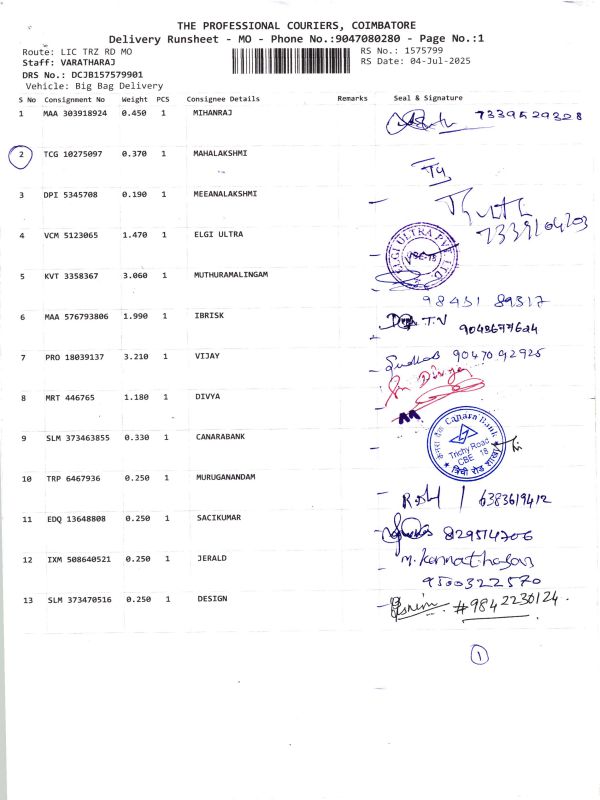 THE PROFESSIONAL COURIERS, COIMBATORE
Delivery Runsheet - MO - Phone No.:9047080280 - Page No.:1
Route: LIC TRZ RD MO RS No.: 1575799
Staff: VARATHARAJ RS Date: 04-Jul-2025
DRS No.: DCJB157579901
Vehicle: Big Bag Delivery
S No Consignment No Weight PCS Consignee Details Remarks Seal & Signature
1 MAA 303918924 0.450 1 MIHANRAJ 7339529328
2 TCG 10275097 0.370 1 MAHALAKSHMI
3 DPI 5345708 0.190 1 MEEANALAKSHMI
7339104203
4 VCM 5123065 1.470 1 ELGI ULTRA ELGI ULTRA PVT. LTD.
5 KVT 3358367 3.060 1 MUTHURAMALINGAM
98431 89317
6 MAA 576793806 1.990 1 IBRISK T.N
7 PRO 18039137 3.210 1 VIJAY 9047092925
8 MRT 446765 1.180 1 DIVYA Divya
9 SLM 373463855 0.330 1 CANARABANK Canara Bank
Trichy Road
CBE 18
10 TRP 6467936 0.250 1 MURUGANANDAM
6383619412
11 EDQ 13648808 0.250 1 SACIKUMAR
12 IXM 508640521 0.250 1 JERALD
9500322570
13 SLM 373470516 0.250 1 DESIGN #9842230124.
1